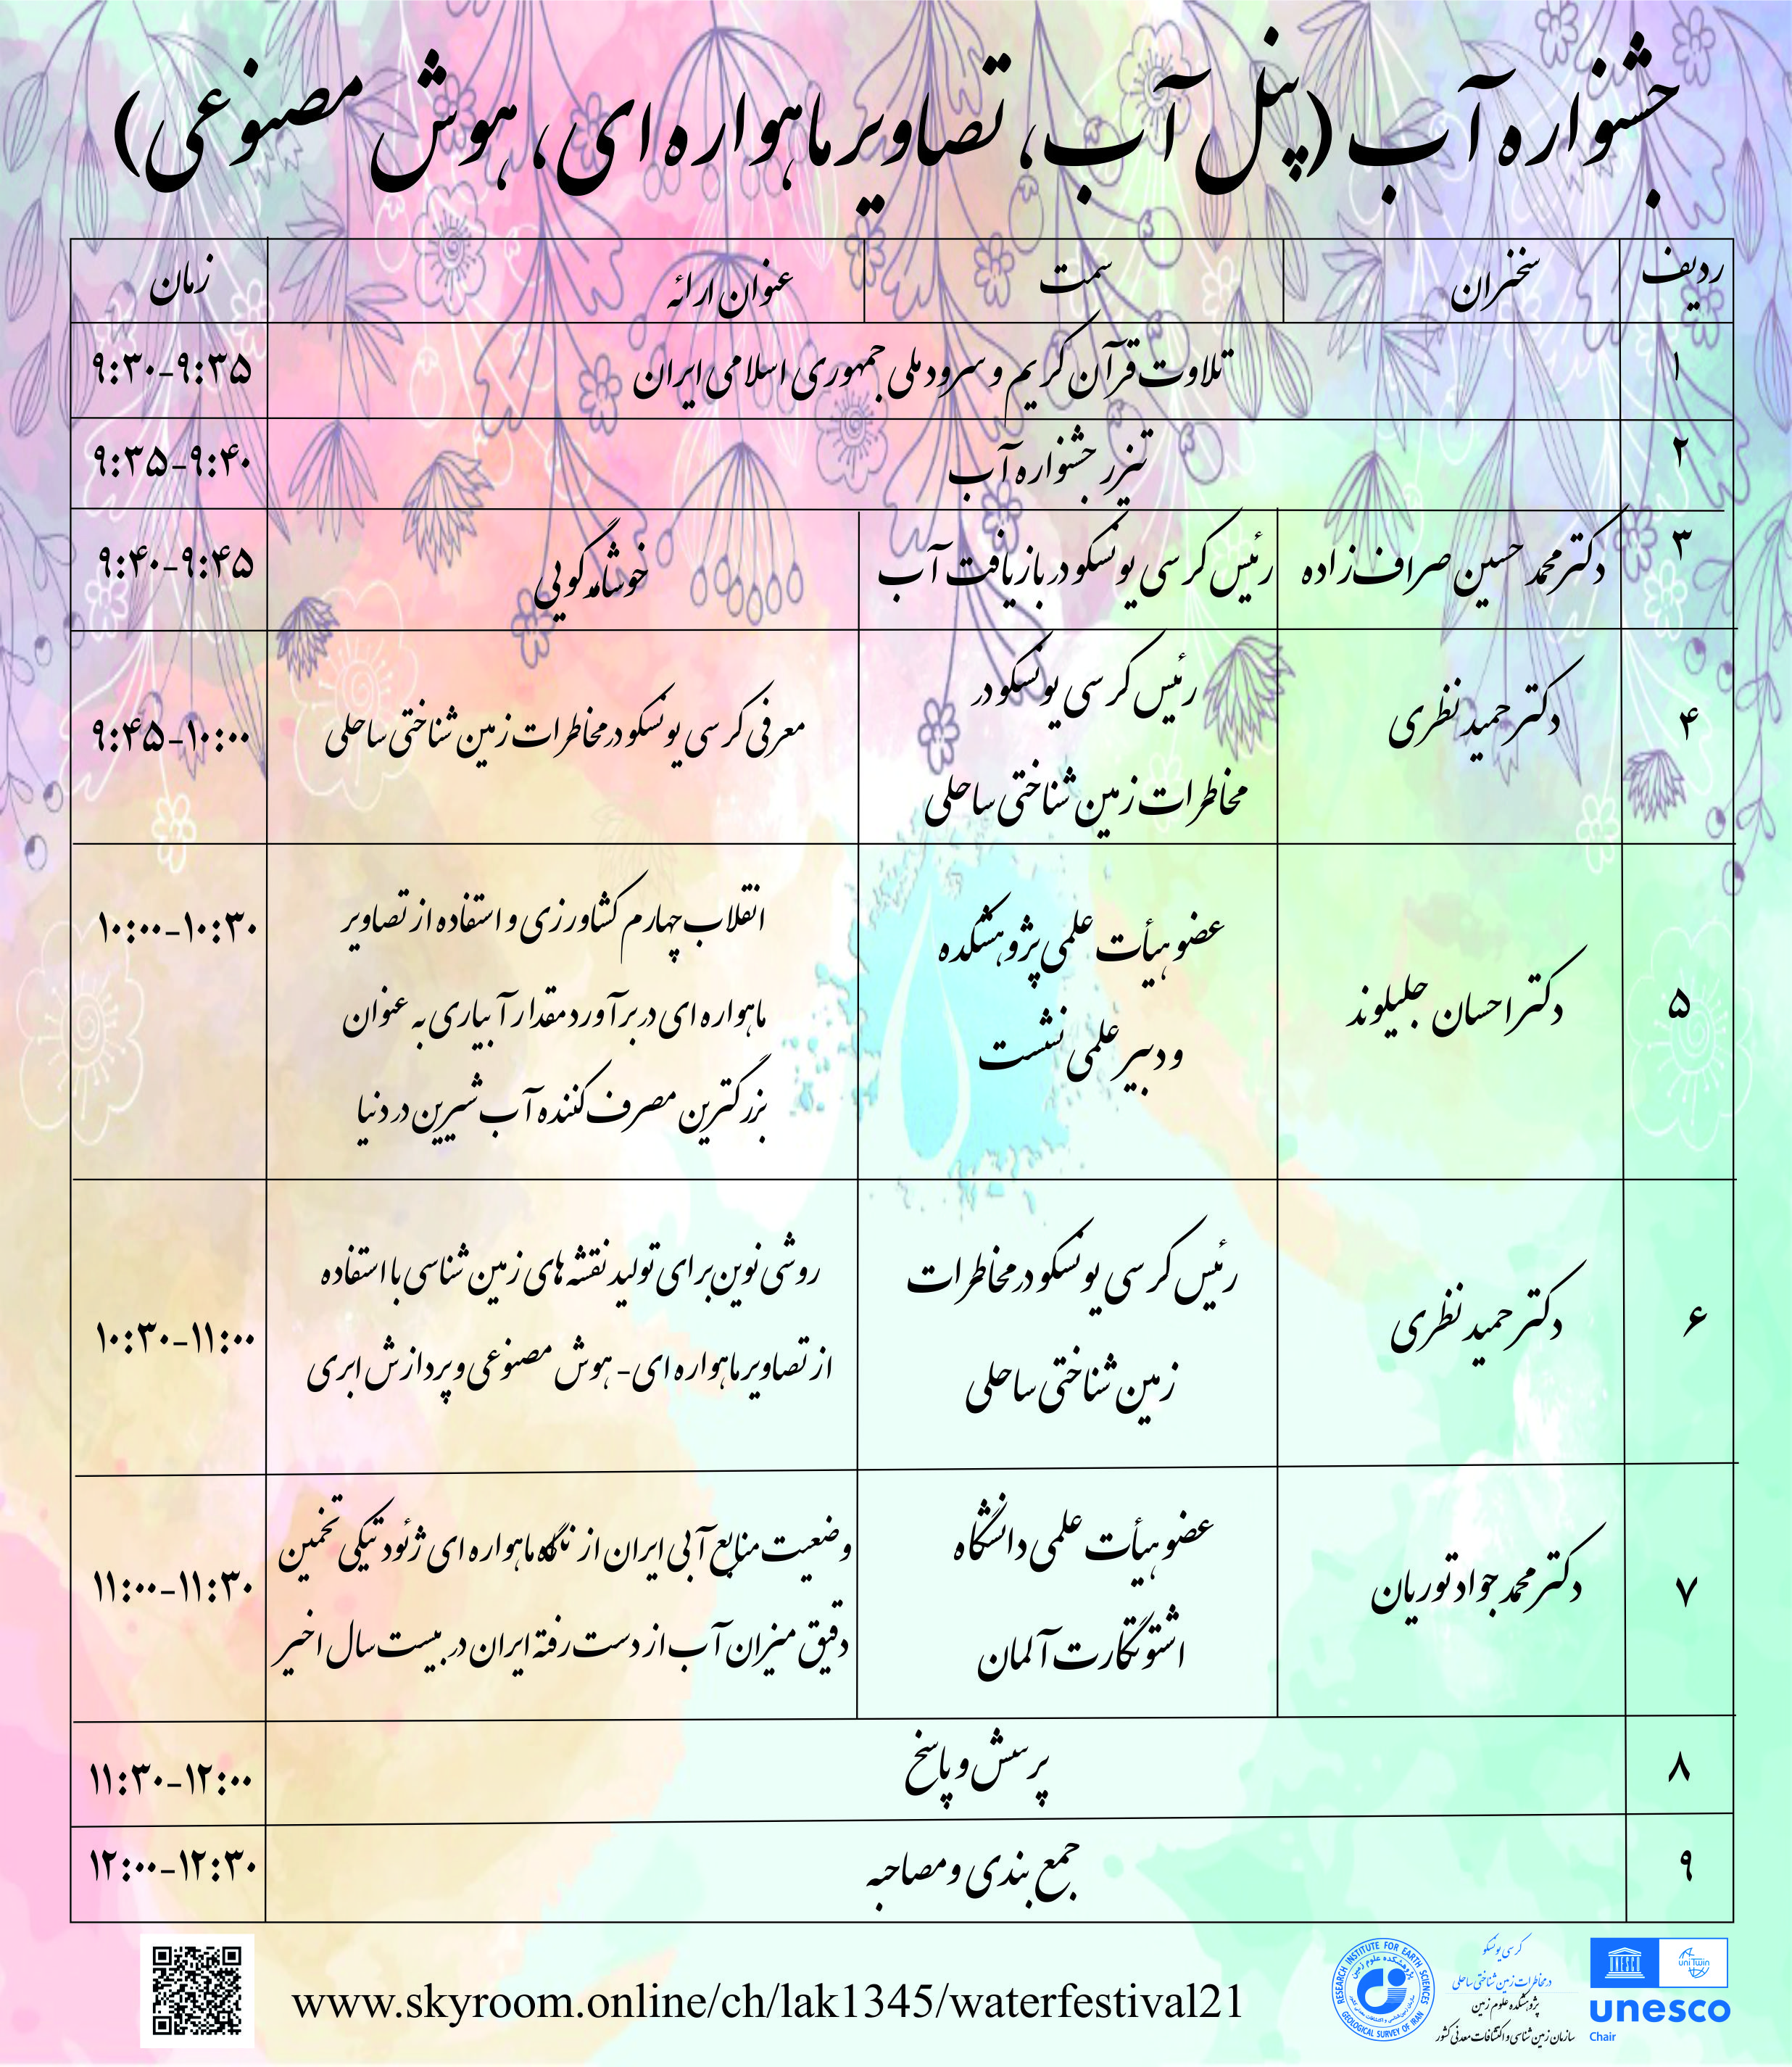 جشنواره آب (پنل آب، تصاویر ماهواره ای، هوش مصنوعی)
ردیف سخنران سمت عنوان ارائه زمان
۱ تلاوت قرآن کریم و سرود ملی جمهوری اسلامی ایران ۹:۳۰-۹:۳۵
۲ تیزر جشنواره آب ۹:۳۵-۹:۴۰
۳ دکتر محمد حسین صراف زاده رئیس کرسی یونسکو در بازیافت آب خوشامدگویی ۹:۴۰-۹:۴۵
۴ دکتر حمید نظری
رئیس کرسی یونسکو در
مخاطرات زمین شناختی ساحلی
معرفی کرسی یونسکو در مخاطرات زمین شناختی ساحلی
۹:۴۵-۱۰:۰۰
۵ دکتر احسان جلیلوند
عضو هیأت علمی پژوهشکده
و دبیر علمی نشست
انقلاب چهارم کشاورزی و استفاده از تصاویر
ماهواره ای در برآورد مقدار آبیاری به عنوان
بزرگترین مصرف کننده آب شیرین در دنیا
۱۰:۰۰-۱۰:۳۰
۶ دکتر حمید نظری
رئیس کرسی یونسکو در مخاطرات
زمین شناختی ساحلی
روشی نوین برای تولید نقشه های زمین شناسی با استفاده
از تصاویر ماهواره ای- هوش مصنوعی و پردازش ابری
۱۰:۳۰-۱۱:۰۰
۷ دکتر محمد جواد توریان
عضو هیأت علمی دانشگاه
اشتوتگارت آلمان
وضعیت منابع آبی ایران از نگاه ماهواره ای ژئودتیکی تخمین
دقیق میزان آب از دست رفته ایران در بیست سال اخیر
۱۱:۰۰-۱۱:۳۰
۸ پرسش و پاسخ ۱۱:۳۰-۱۲:۰۰
۹ جمع بندی و مصاحبه ۱۲:۰۰-۱۲:۳۰
www.skyroom.online/ch/lak1345/waterfestival21
RESEARCH INSTITUTE FOR EARTH SCIENCES
پژوهشکده علوم زمین
GEOLOGICAL SURVEY OF IRAN
کرسی یونسکو
در مخاطرات زمین شناختی ساحلی
پژوهشکده علوم زمین
سازمان زمین شناسی و اکتشافات معدنی کشور
uniTwin
unesco
Chair